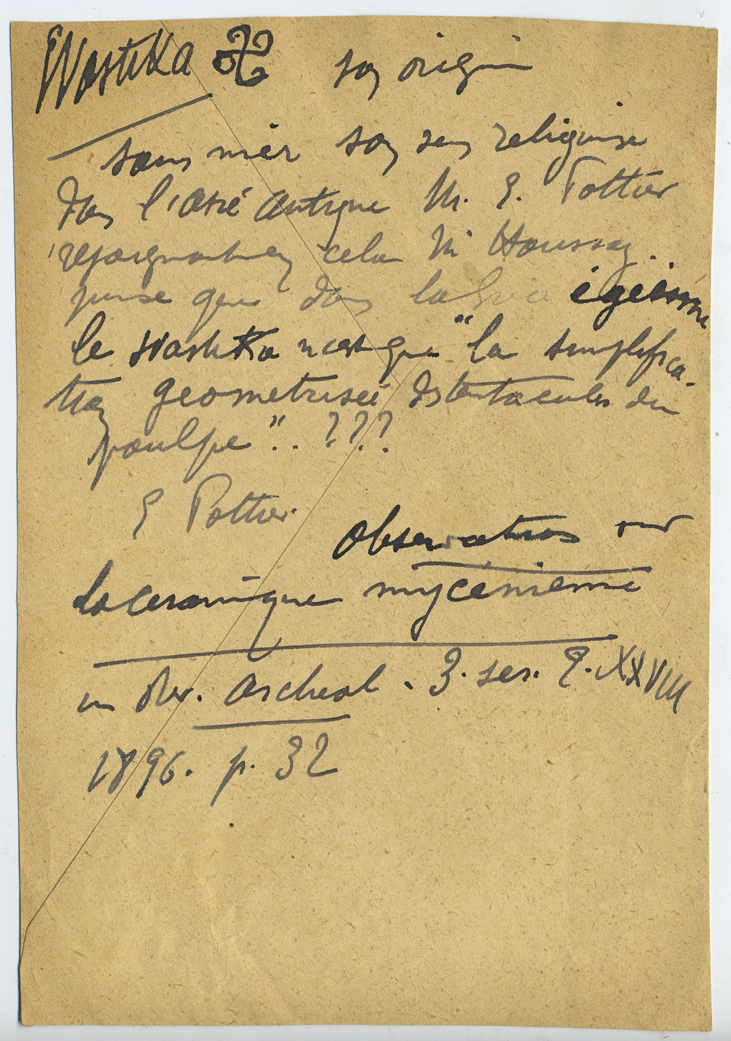 Swastika 卐 son origine
sans nier son sens religieux
dans l'asie antique M. E. Pottier
rejoignant en cela M Houssay
pense que dans la Grèce égéenne
le swastika n'est que "la simplifica-
tion géométrisée des tentacules du
poulpe".. ???
E Pottier.
Observations sur
la ceramique mycénienne
in Rev. Archeol. 3. ser. T. XXVIII
1896. p. 32